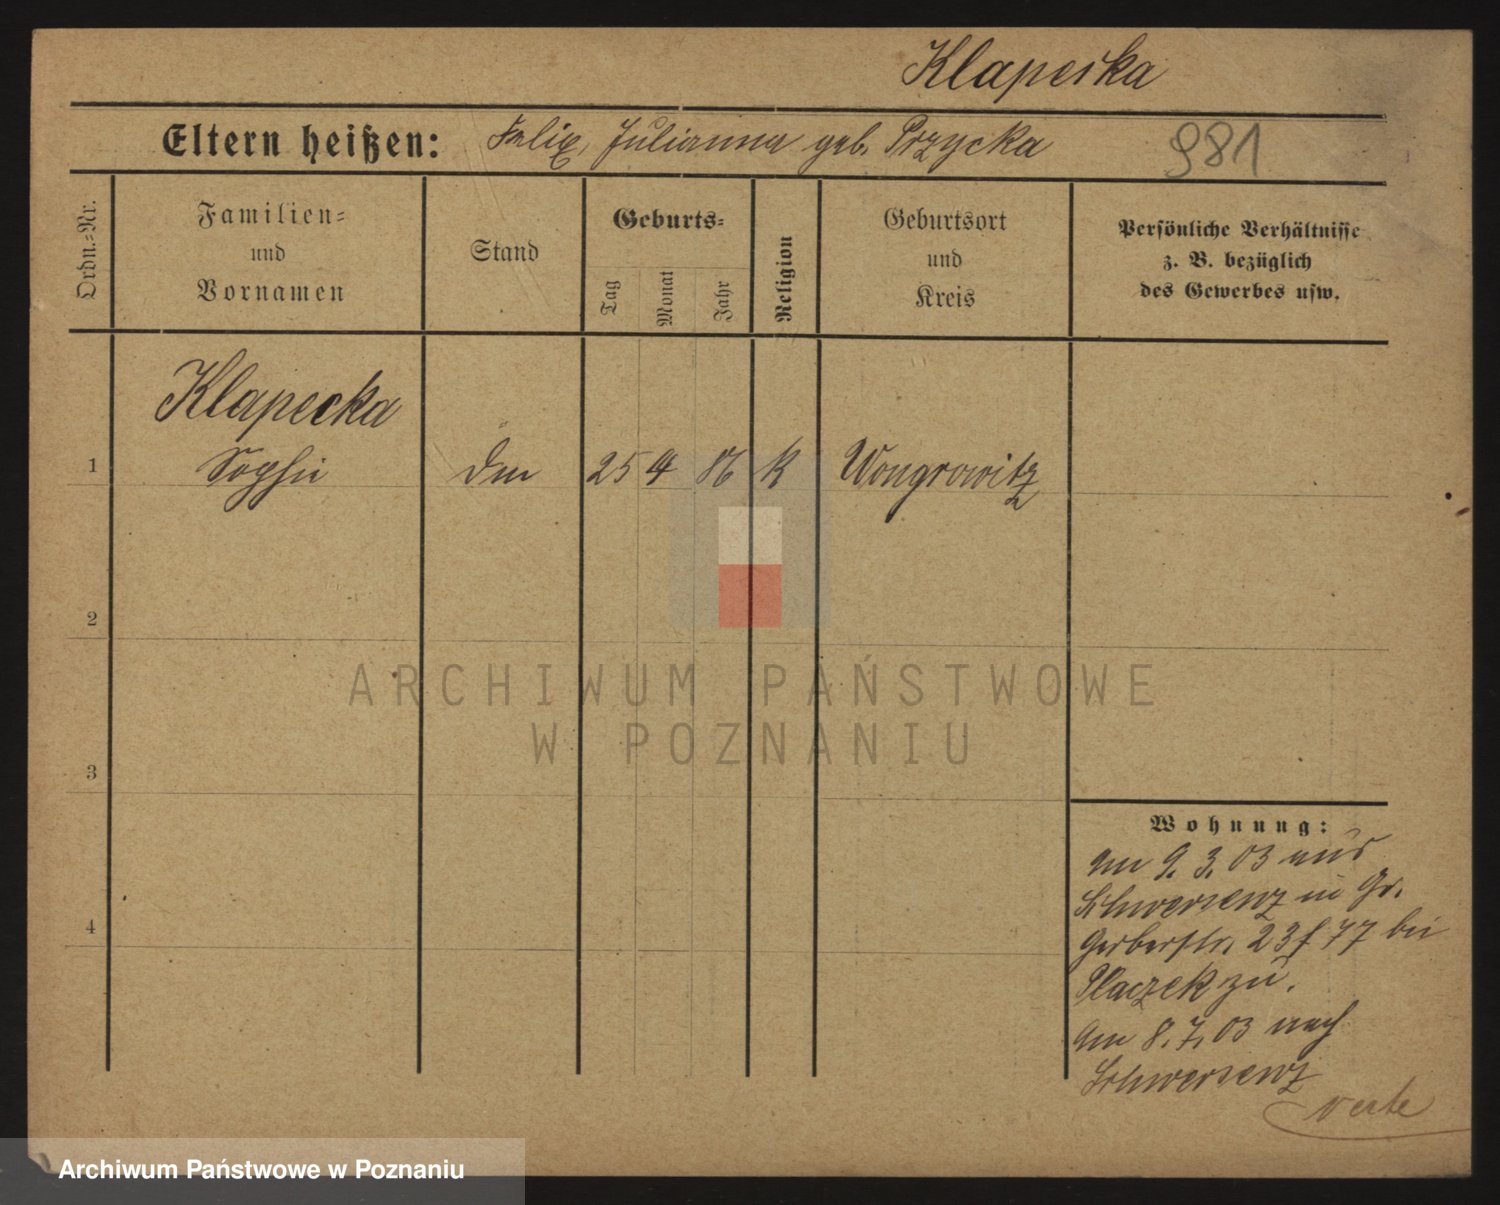 Klapecka
Eltern heißen: Felix, Julianna geb. Przycka
981
Ordn.-Nr.
Familien-
und
Vornamen
Stand
Geburts-
Tag
Monat
Jahr
Religion
Geburtsort
und
Kreis
Persönliche Verhältnisse
z. B. bezüglich
des Gewerbes usw.
Klapecka
1 Sophie 25 4 86 K Wongrowitz
2
ARCHIWUM PAŃSTWOWE
W POZNANIU
3
4
Wohnung:
Am 9. 3. 03 aus
Schwersenz in Gr.
Gerberstr. 23 f 77 bei
Placzek zu.
Am 8. 7. 03 nach
Schwersenz
verte
Archiwum Państwowe w Poznaniu